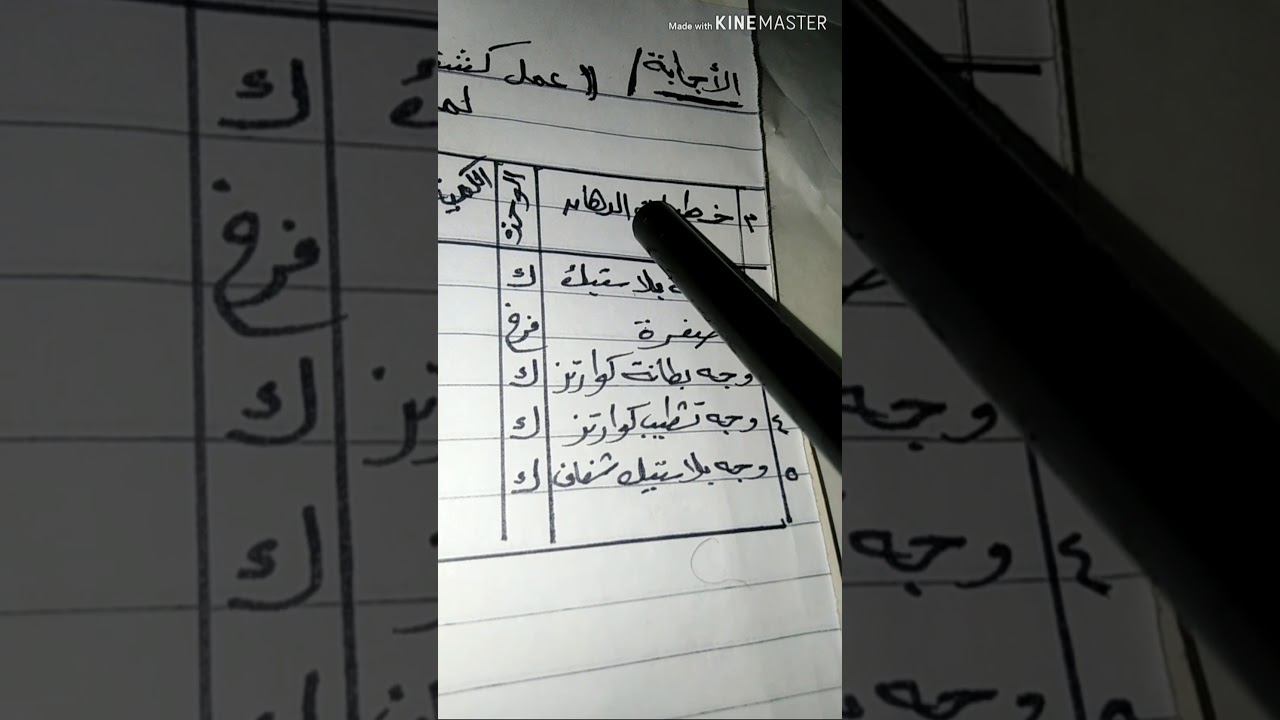 Made with KINEMASTER
الأجابة / (( عمل كشف
م خطوات الدهان الوحدة الكمية
بلاستيك ك
صنفرة فرخ
وجه بطانة كوارتز ك
٤ وجه تشطيب كوارتز ك
٥ وجه بلاستيك شفاف ك